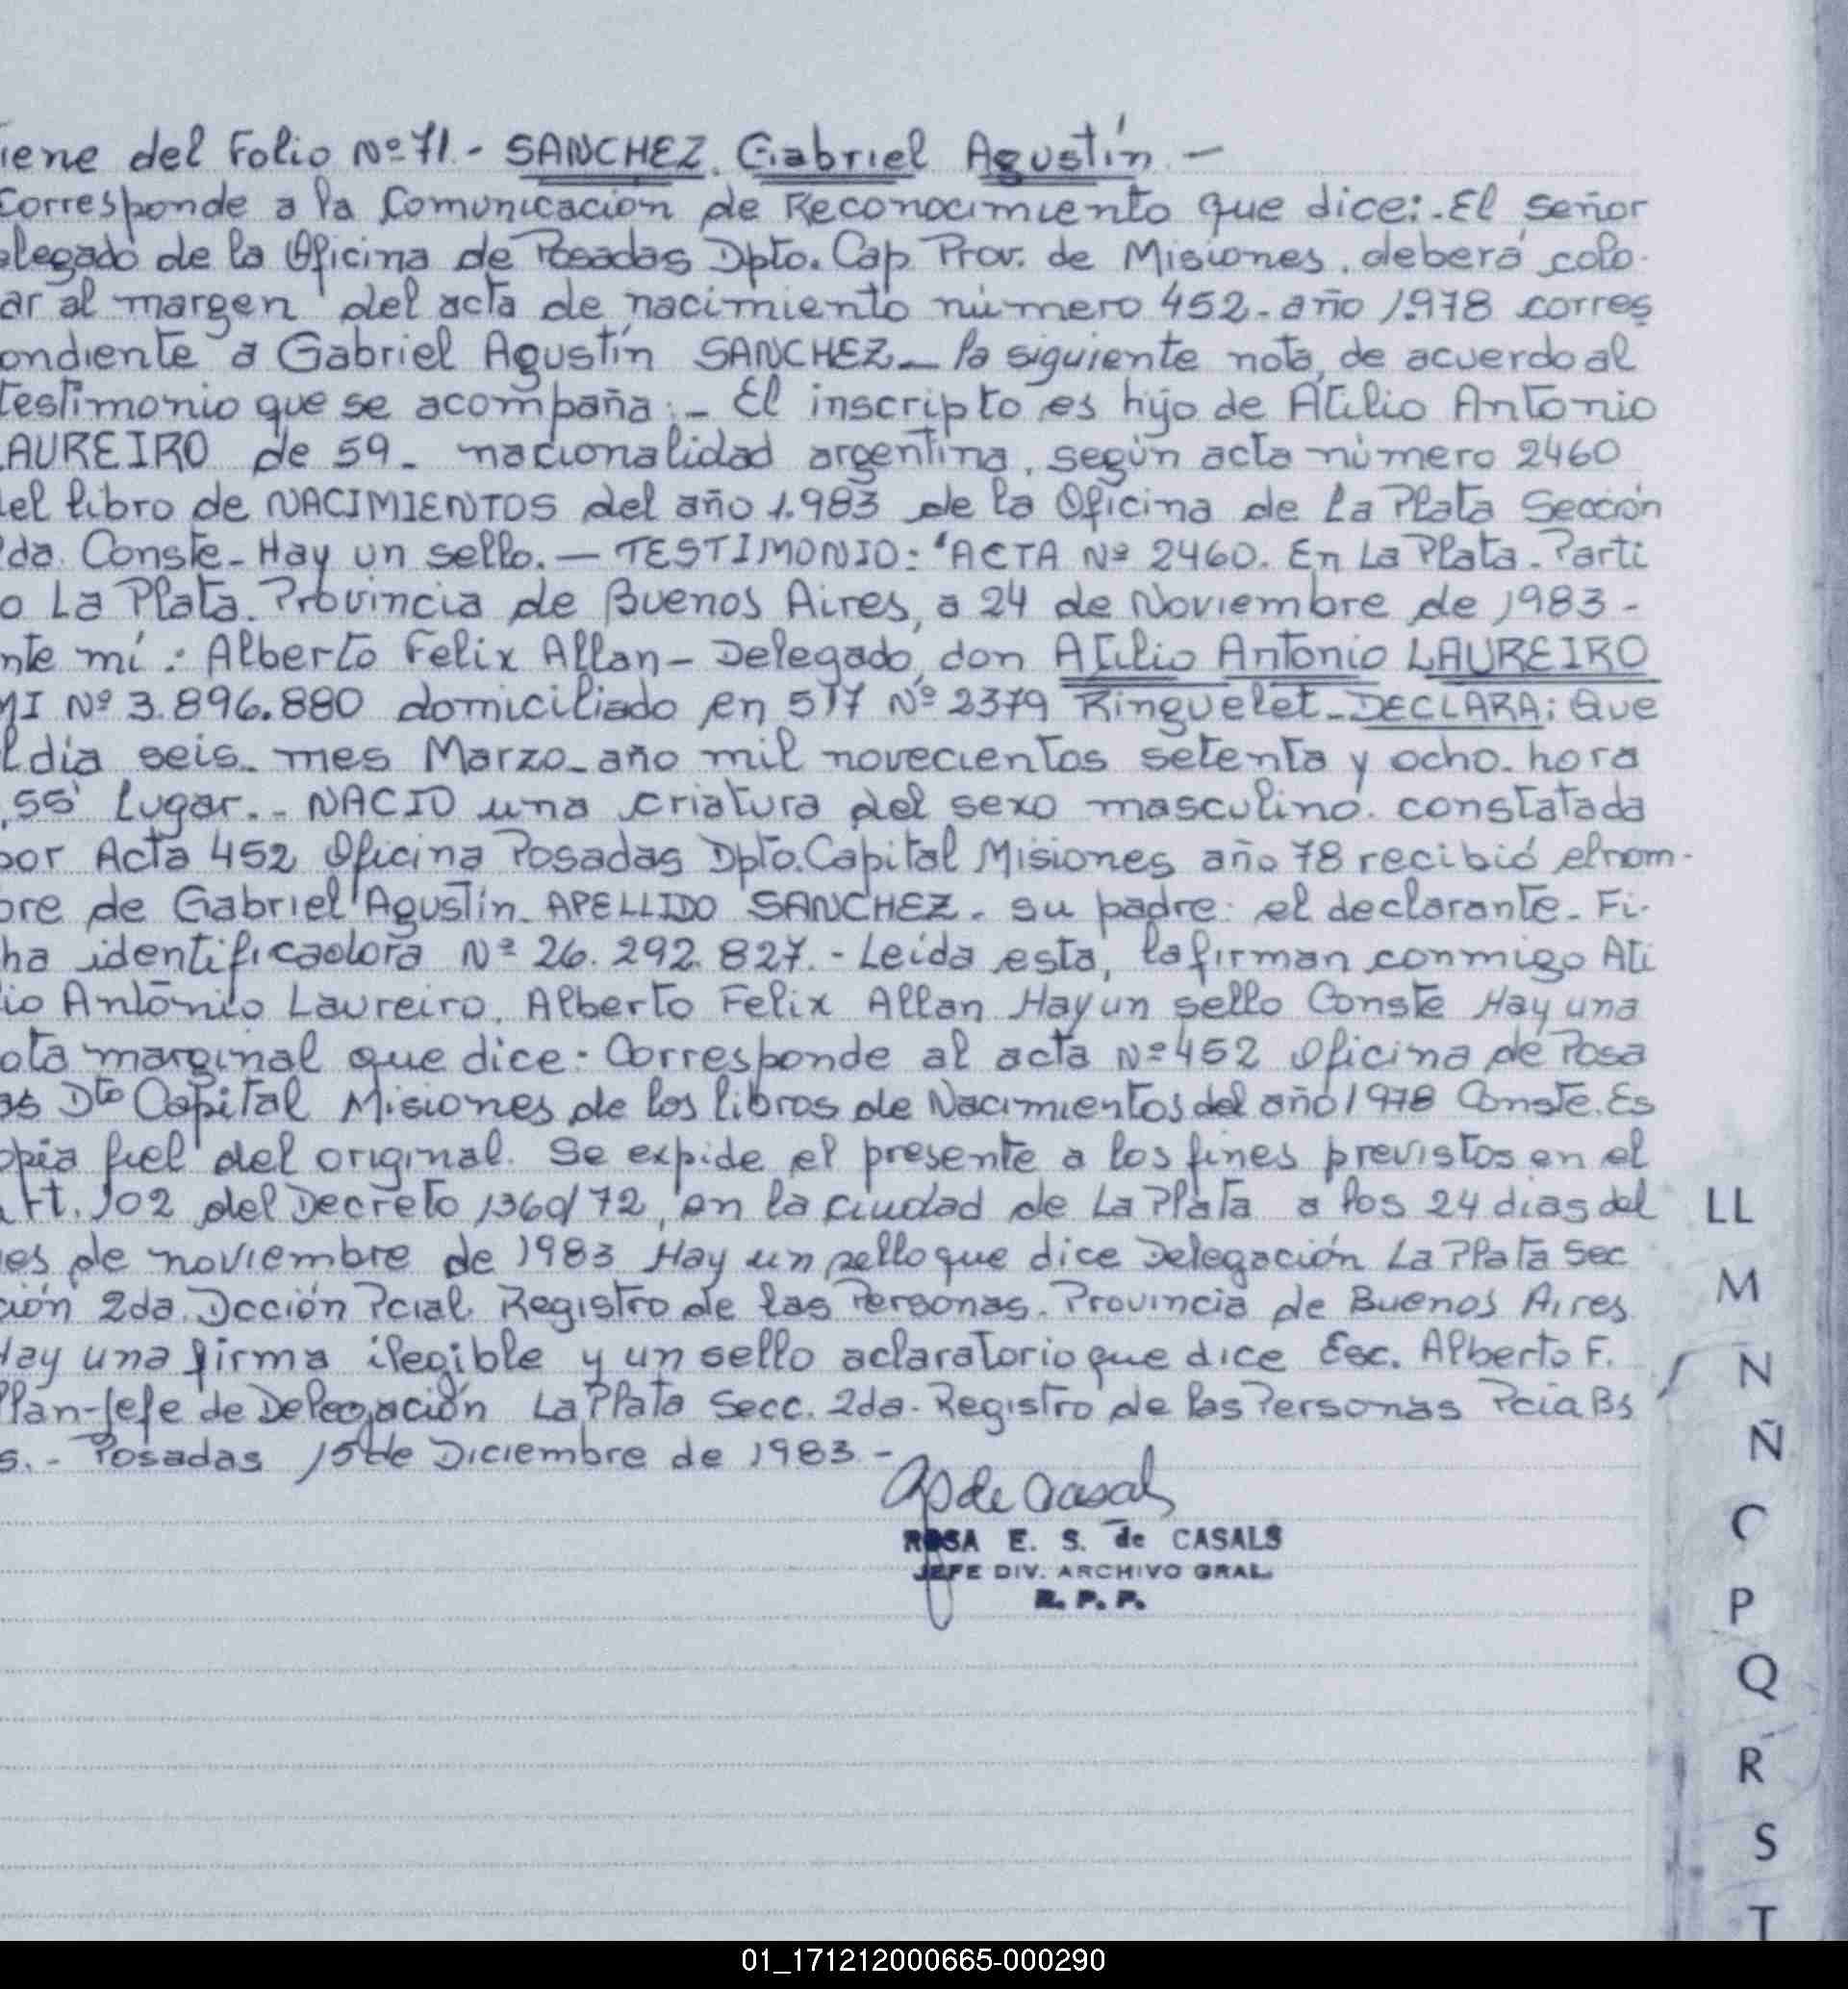 iene del Folio Nº 71.- SANCHEZ. Gabriel Agustín.-
Corresponde a la Comunicación de Reconocimiento que dice:.El señor
elegado de la Oficina de Posadas Dpto. Cap. Prov. de Misiones, deberá colo-
ar al margen del acta de nacimiento número 452- año 1.978 corres
ondiente a Gabriel Agustín SANCHEZ- la siguiente nota, de acuerdo al
testimonio que se acompaña:- El inscripto es hijo de Atilio Antonio
LAUREIRO de 59- nacionalidad argentina, según acta número 2460
el libro de NACIMIENTOS del año 1.983 de la Oficina de La Plata Sección
da. Conste- Hay un sello.- TESTIMONIO: "ACTA Nº 2460. En La Plata- Parti
o La Plata. Provincia de Buenos Aires, a 24 de Noviembre de 1983-
nte mí: Alberto Felix Allan- Delegado, don Atilio Antonio LAUREIRO
MI Nº 3.896.880 domiciliado en 517 Nº 2379 Ringuelet- DECLARA: Que
l día seis- mes Marzo- año mil novecientos setenta y ocho- hora
,55' Lugar..- NACIO una criatura del sexo masculino. constatada
por Acta 452 Oficina Posadas Dpto. Capital Misiones año 78 recibió el nom-
bre de Gabriel Agustín- APELLIDO SANCHEZ- su padre: el declarante- Fi-
ha identificadora Nº 26.292.827.- Leída esta, la firman conmigo Ati
lio Antonio Laureiro, Alberto Felix Allan Hay un sello Conste Hay una
ota marginal que dice: Corresponde al acta Nº 452 Oficina de Posa
as Dto Capital Misiones de los libros de Nacimientos del año 1978 Conste. Es
opia fiel del original. Se expide el presente a los fines previstos en el
Art. 102 del Decreto 1360/72, en la ciudad de La Plata a los 24 dias del
es de noviembre de 1983 Hay un sello que dice Delegación La Plata Sec
ción 2da. Dcción Pcial. Registro de las Personas. Provincia de Buenos Aires
Hay una firma ilegible y un sello aclaratorio que dice Esc. Alberto F.
llan-Jefe de Delegación La Plata Secc. 2da. Registro de las Personas Pcia Bs
s.- Posadas 15 de Diciembre de 1983.-
ROSA E. S. de CASALS
JEFE DIV. ARCHIVO GRAL.
R. P. P.
LL
M
N
Ñ
O
P
Q
R
S
T
01_171212000665-000290